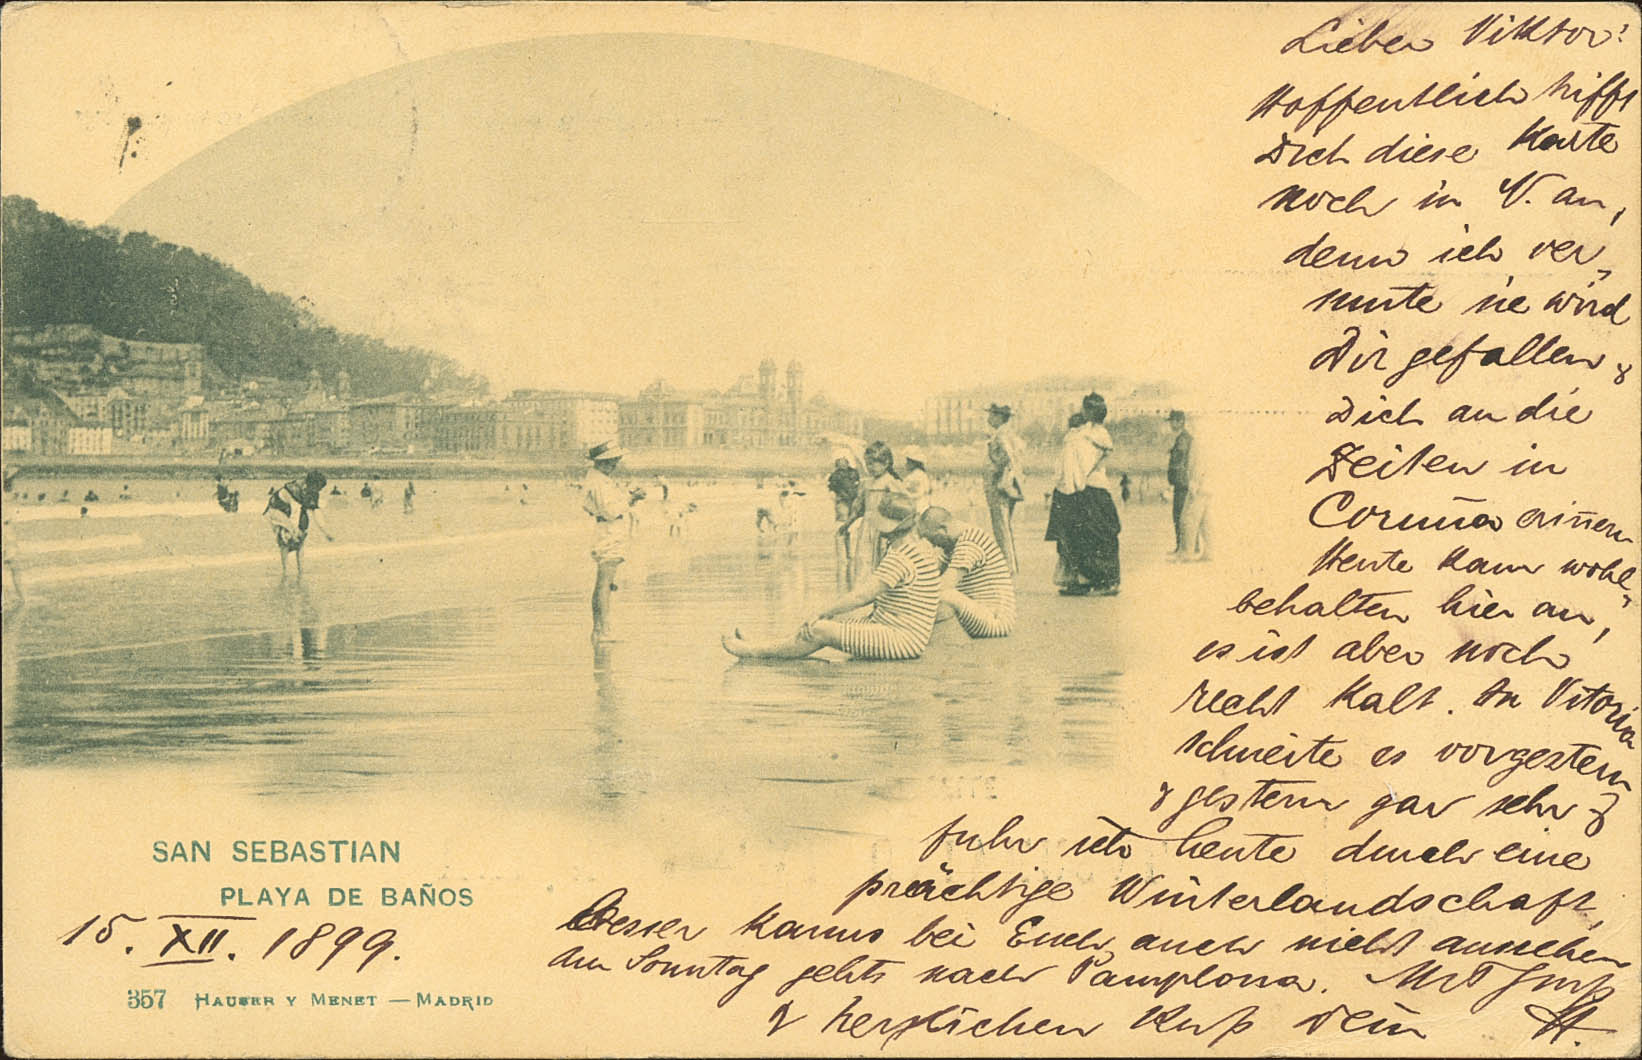 Lieber Viktor!
Hoffentlich trifft
Dich diese Karte
noch in V. an,
denn ich ver„
mute sie wird
Dir gefallen &
Dich an die
Zeiten in
Coruña erinnern
Heute kam wohl„
behalten hier an,
es ist aber noch
recht kalt. In Vitoria
schneite es vorgestern
& gestern gar sehr &
fuhr ich heute durch eine
prächtige Winterlandschaft,
besser kanns bei Euch auch nicht aussehen
Am Sonntag gehts nach Pamplona. Mit Gruß
& herzlichen Kuß Dein H.
SAN SEBASTIAN
PLAYA DE BAÑOS
15. XII. 1899.
357 HAUSER Y MENET — MADRID